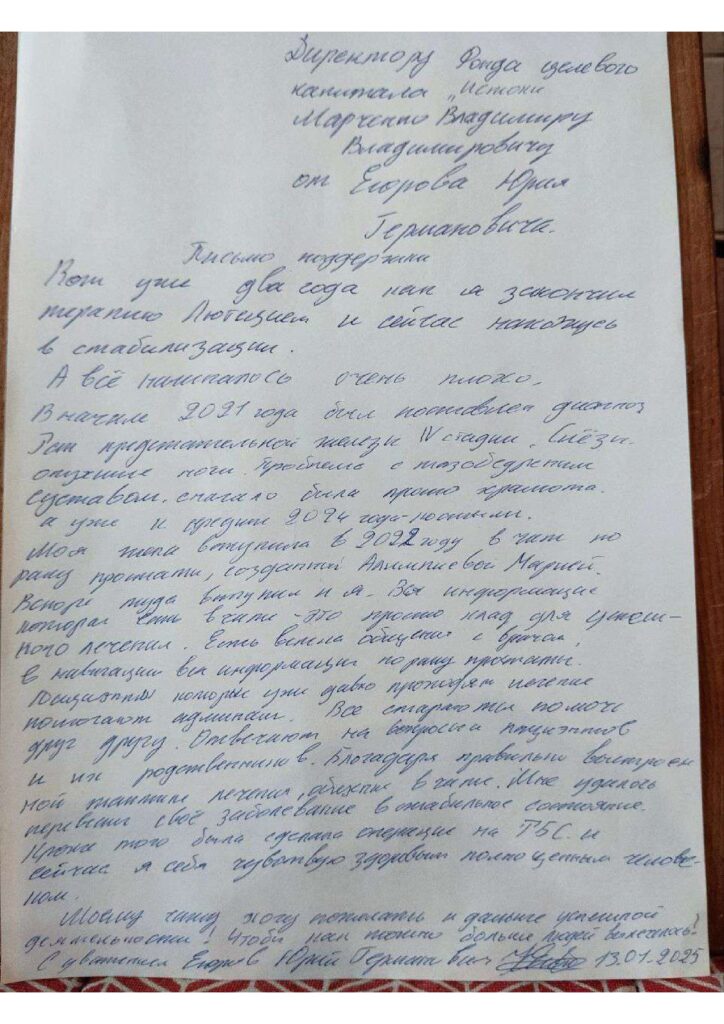 Директору Фонда целевого
капитала „Истоки
Марченко Владимиру
Владимировичу
от Егорова Юрия
Германовича.
Письмо поддержки
Вот уже два года как я закончил
терапию Лютецием и сейчас нахожусь
в стабилизации.
А всё начиналось очень плохо.
В начале 2021 года был поставлен диагноз
Рак предстательной железы IV стадии.
опухшие ноги. Проблема с тазобедренным
суставом. сначало была просто хромота.
а уже к средине 2024 года-костыли.
Моя жена вступила в 2022 году в чат по
раку простаты, созданный Алимпиевой Марией.
Вскоре туда вступил и я. Вся информация
которая есть в чате - это просто клад для успеш-
ного лечения. Есть общения с врачом,
в навигации вся информация по раку простаты.
Пациенты которые уже давно проходят лечение
помогают админам. Все стараются помочь
друг другу. Отвечают на вопросы пациентов
и их родственников. Благодаря правильно выстроен
ной тактике лечения, в чате. Мне удалось
перевести своё заболевание в стабильное состояние.
Кроме того была сделана операция на ТБС. и
сейчас я себя чувствую здоровым полноценным челове-
ком.
Моему чату хочу пожелать и дальше успешной
деятельности! Чтобы как можно больше людей
С уважением Егоров Юрий Германович 13.01.2025